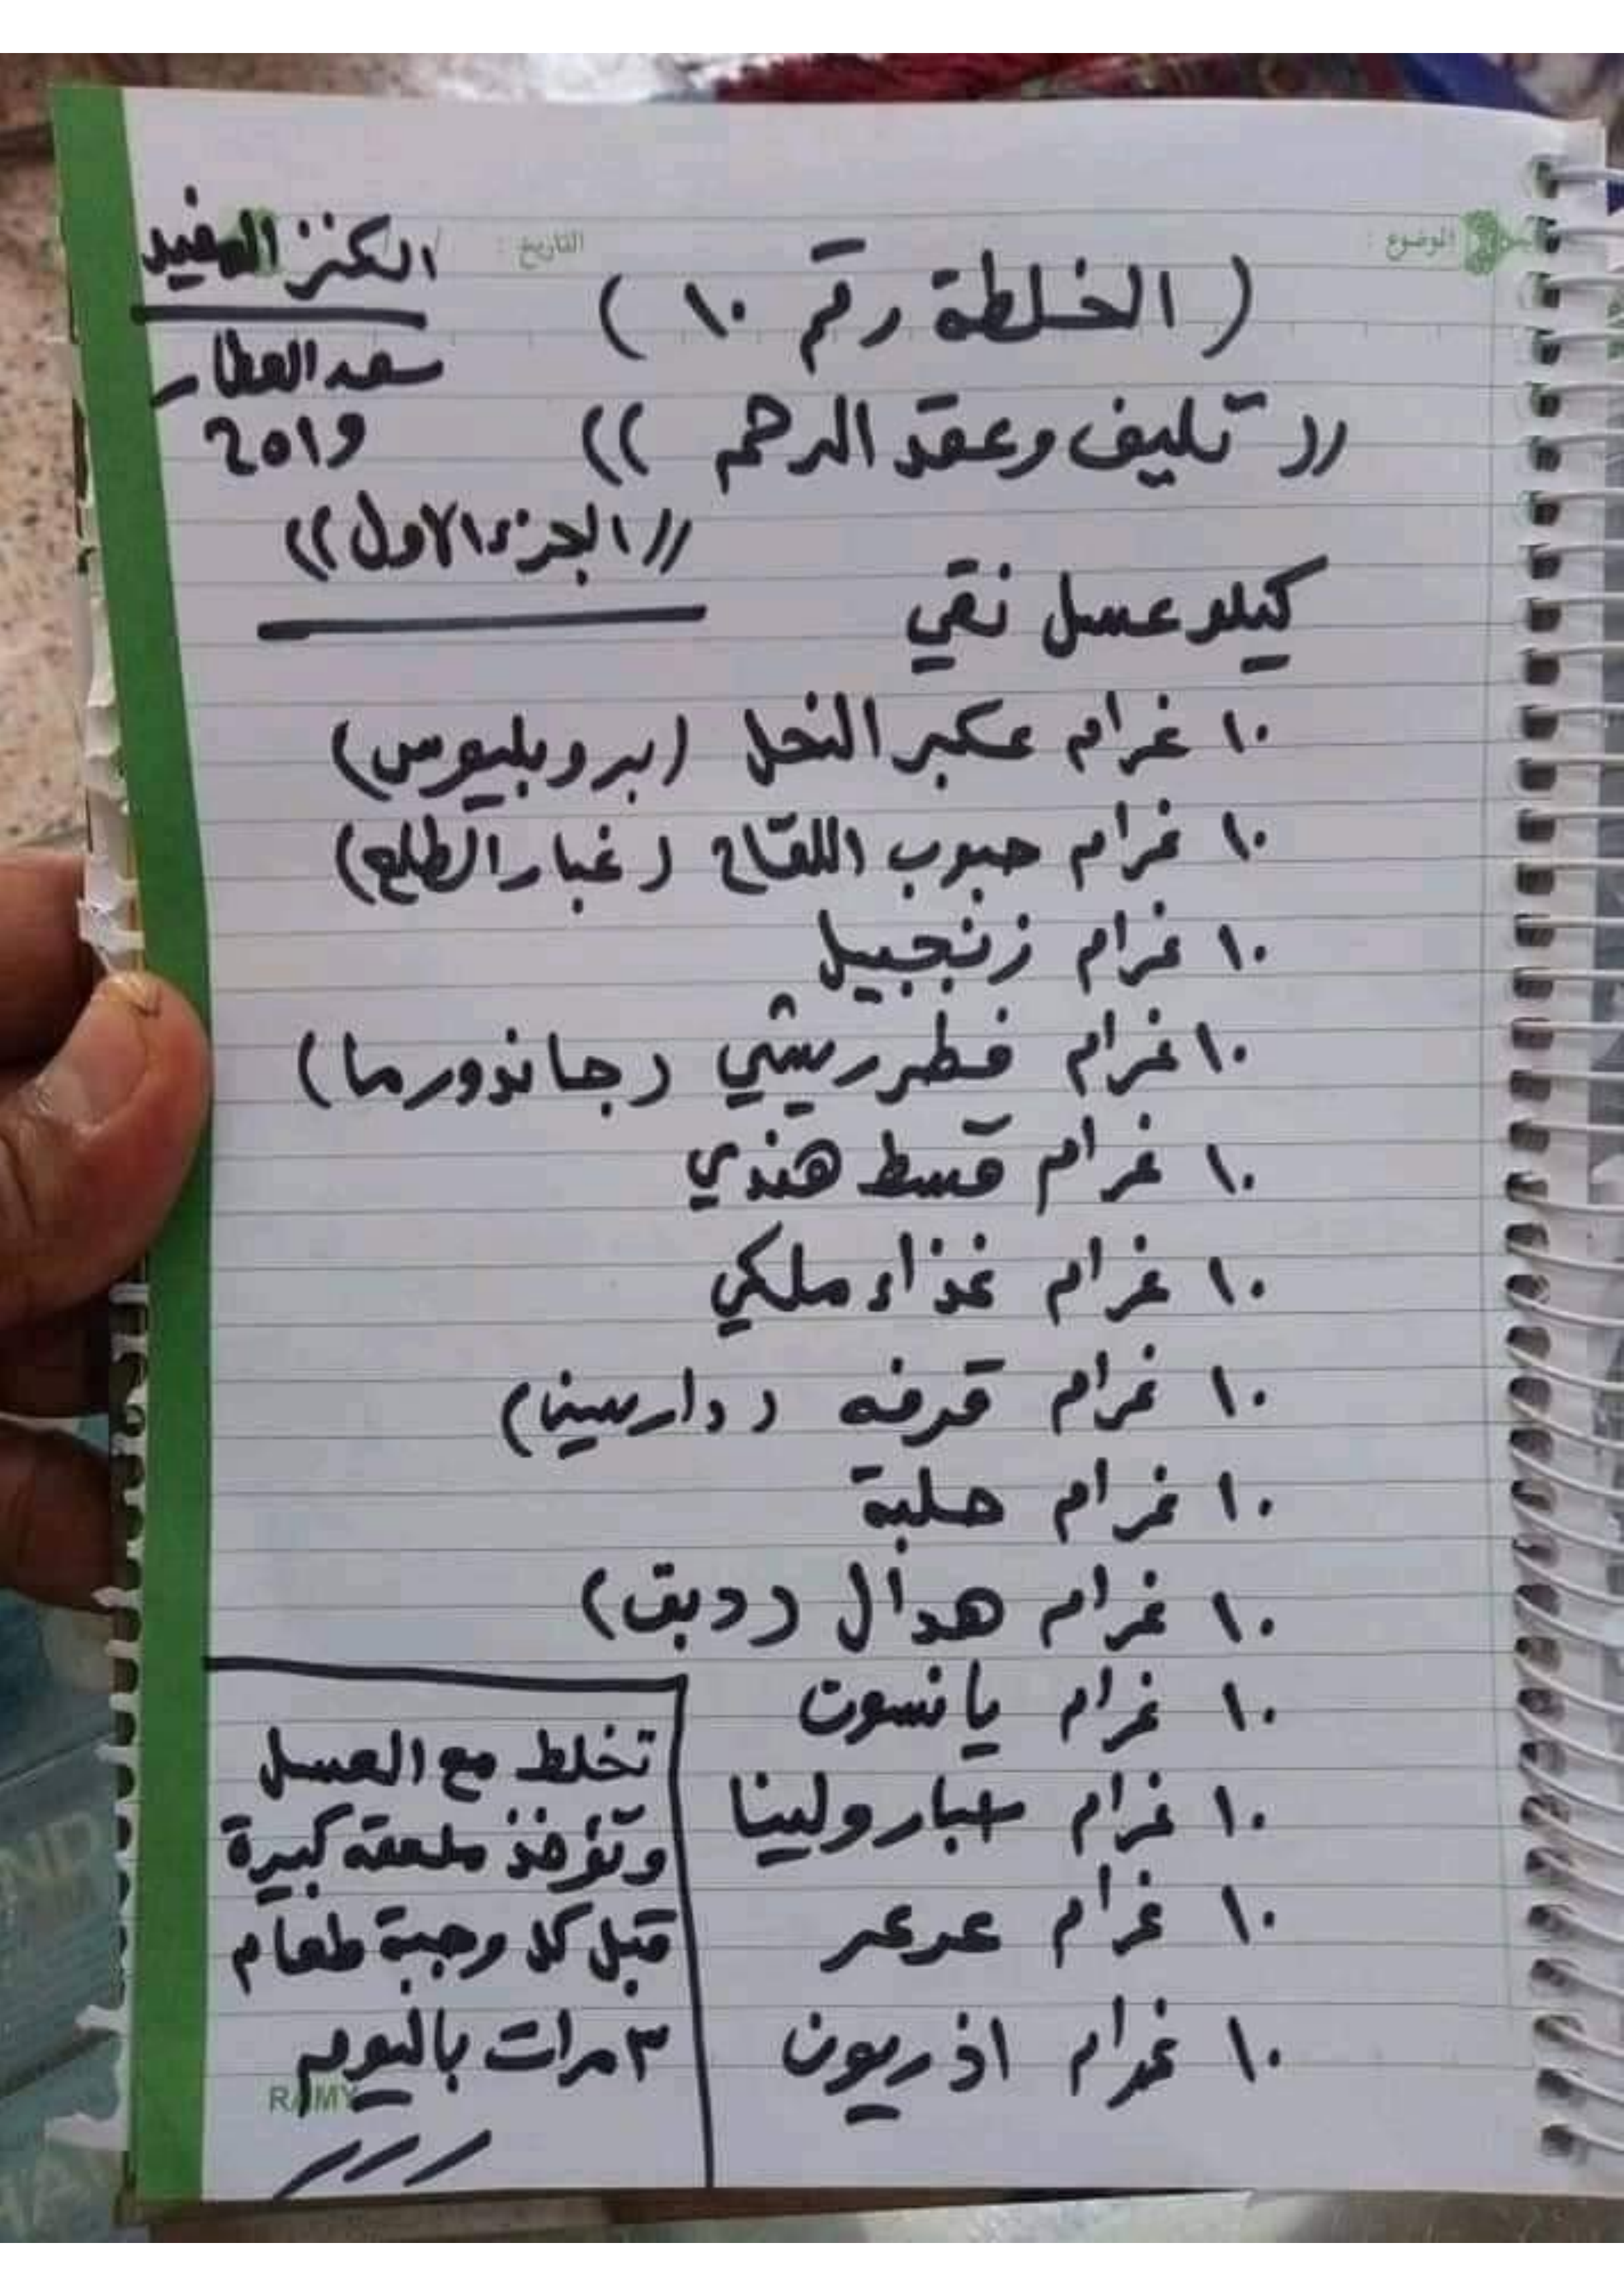 الموضوع :
التاريخ : / /
الكنز المفيد
سعد العطار
2019
( الخلطة رقم ١٠ )
(( تليف وعقد الرحم ))
(( الجزء الاول ))
كيلو عسل نقي
١٠ غرام عكبر النحل (بروبليوس)
١٠ غرام حبوب اللقاح (غبار الطلع)
١٠ غرام زنجبيل
١٠ غرام فطر ريشي (جانودورما)
١٠ غرام قسط هندي
١٠ غرام غذاء ملكي
١٠ غرام قرفه (دارسين)
١٠ غرام حلبة
١٠ غرام هدال (دبق)
١٠ غرام يانسون
١٠ غرام سبارولينا
١٠ غرام عرعر
١٠ غرام اذريون
تخلط مع العسل
وتؤخذ ملعقه كبيرة
قبل كل وجبة طعام
٣ مرات باليوم
RAMY